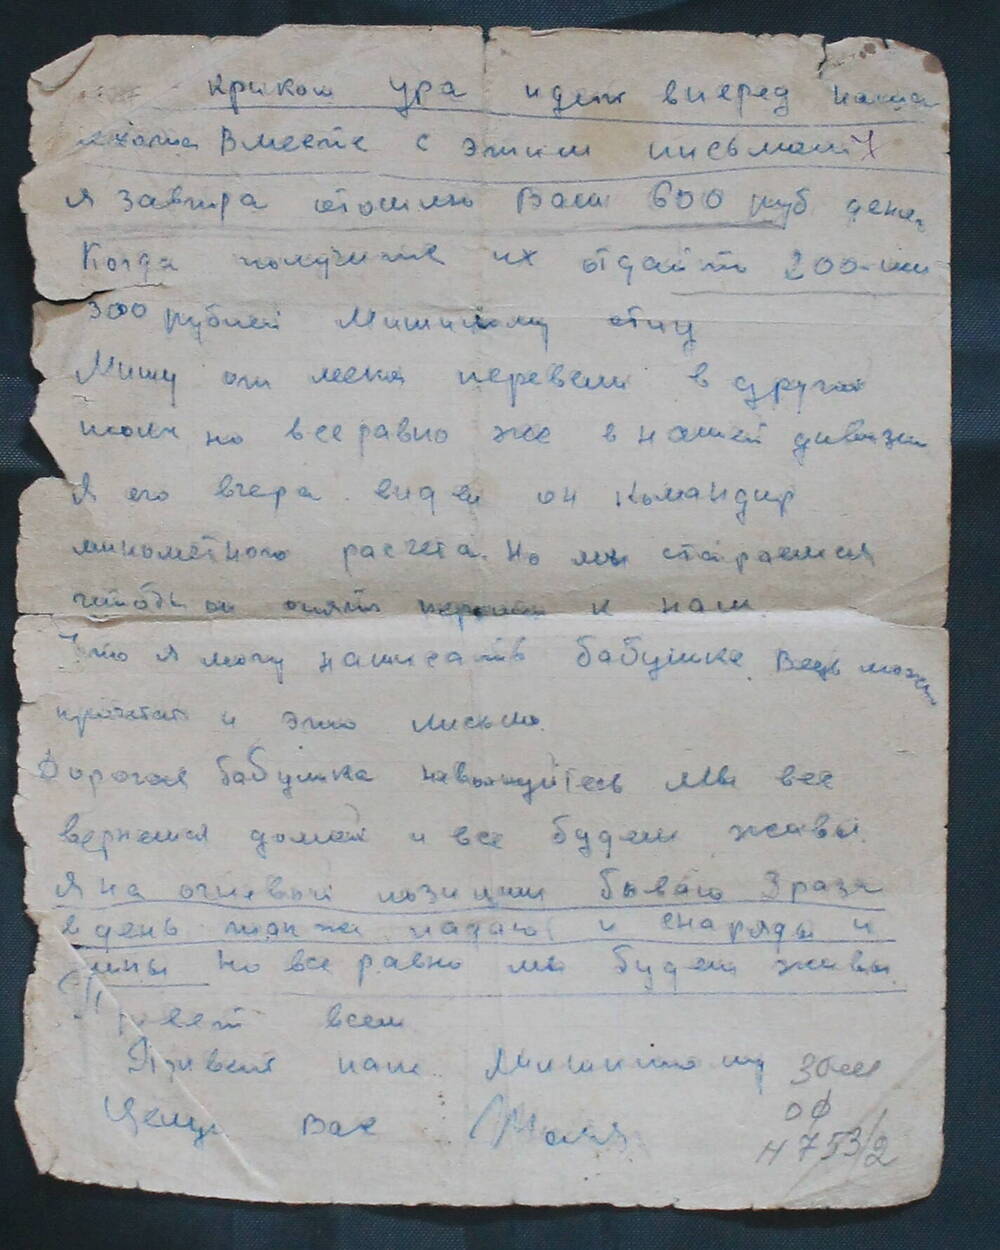 криком ура идет вперед наша
пехота Вместе с этим письмом
я завтра отошлю Вам 600 руб денег
Когда получите их отдайте 200-или
300 рублей Мишиному отцу
Мишу от меня перевели в другой
полк но все равно же в нашей дивизии
Я его вчера видел он командир
минометного расчета. Но мы стараемся
чтобы он опять к нам
Что я могу написать бабушке. Ведь может
прочтет и это письмо.
Дорогая бабушка Мы все
вернемся домой и все будем живы.
Я на огневый позиции бываю 3 раза
в день там же падают и снаряды и
мины Но все равно мы будем живы
Привет всем
Привет
Целую Вас
ОФ
Н 753/2